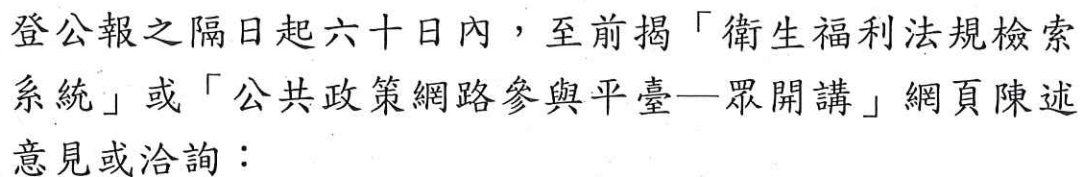 登公報之隔日起六十日內，至前揭「衛生福利法規檢索
系統」或「公共政策網路參與平臺—眾開講」網頁陳述
意見或洽詢：